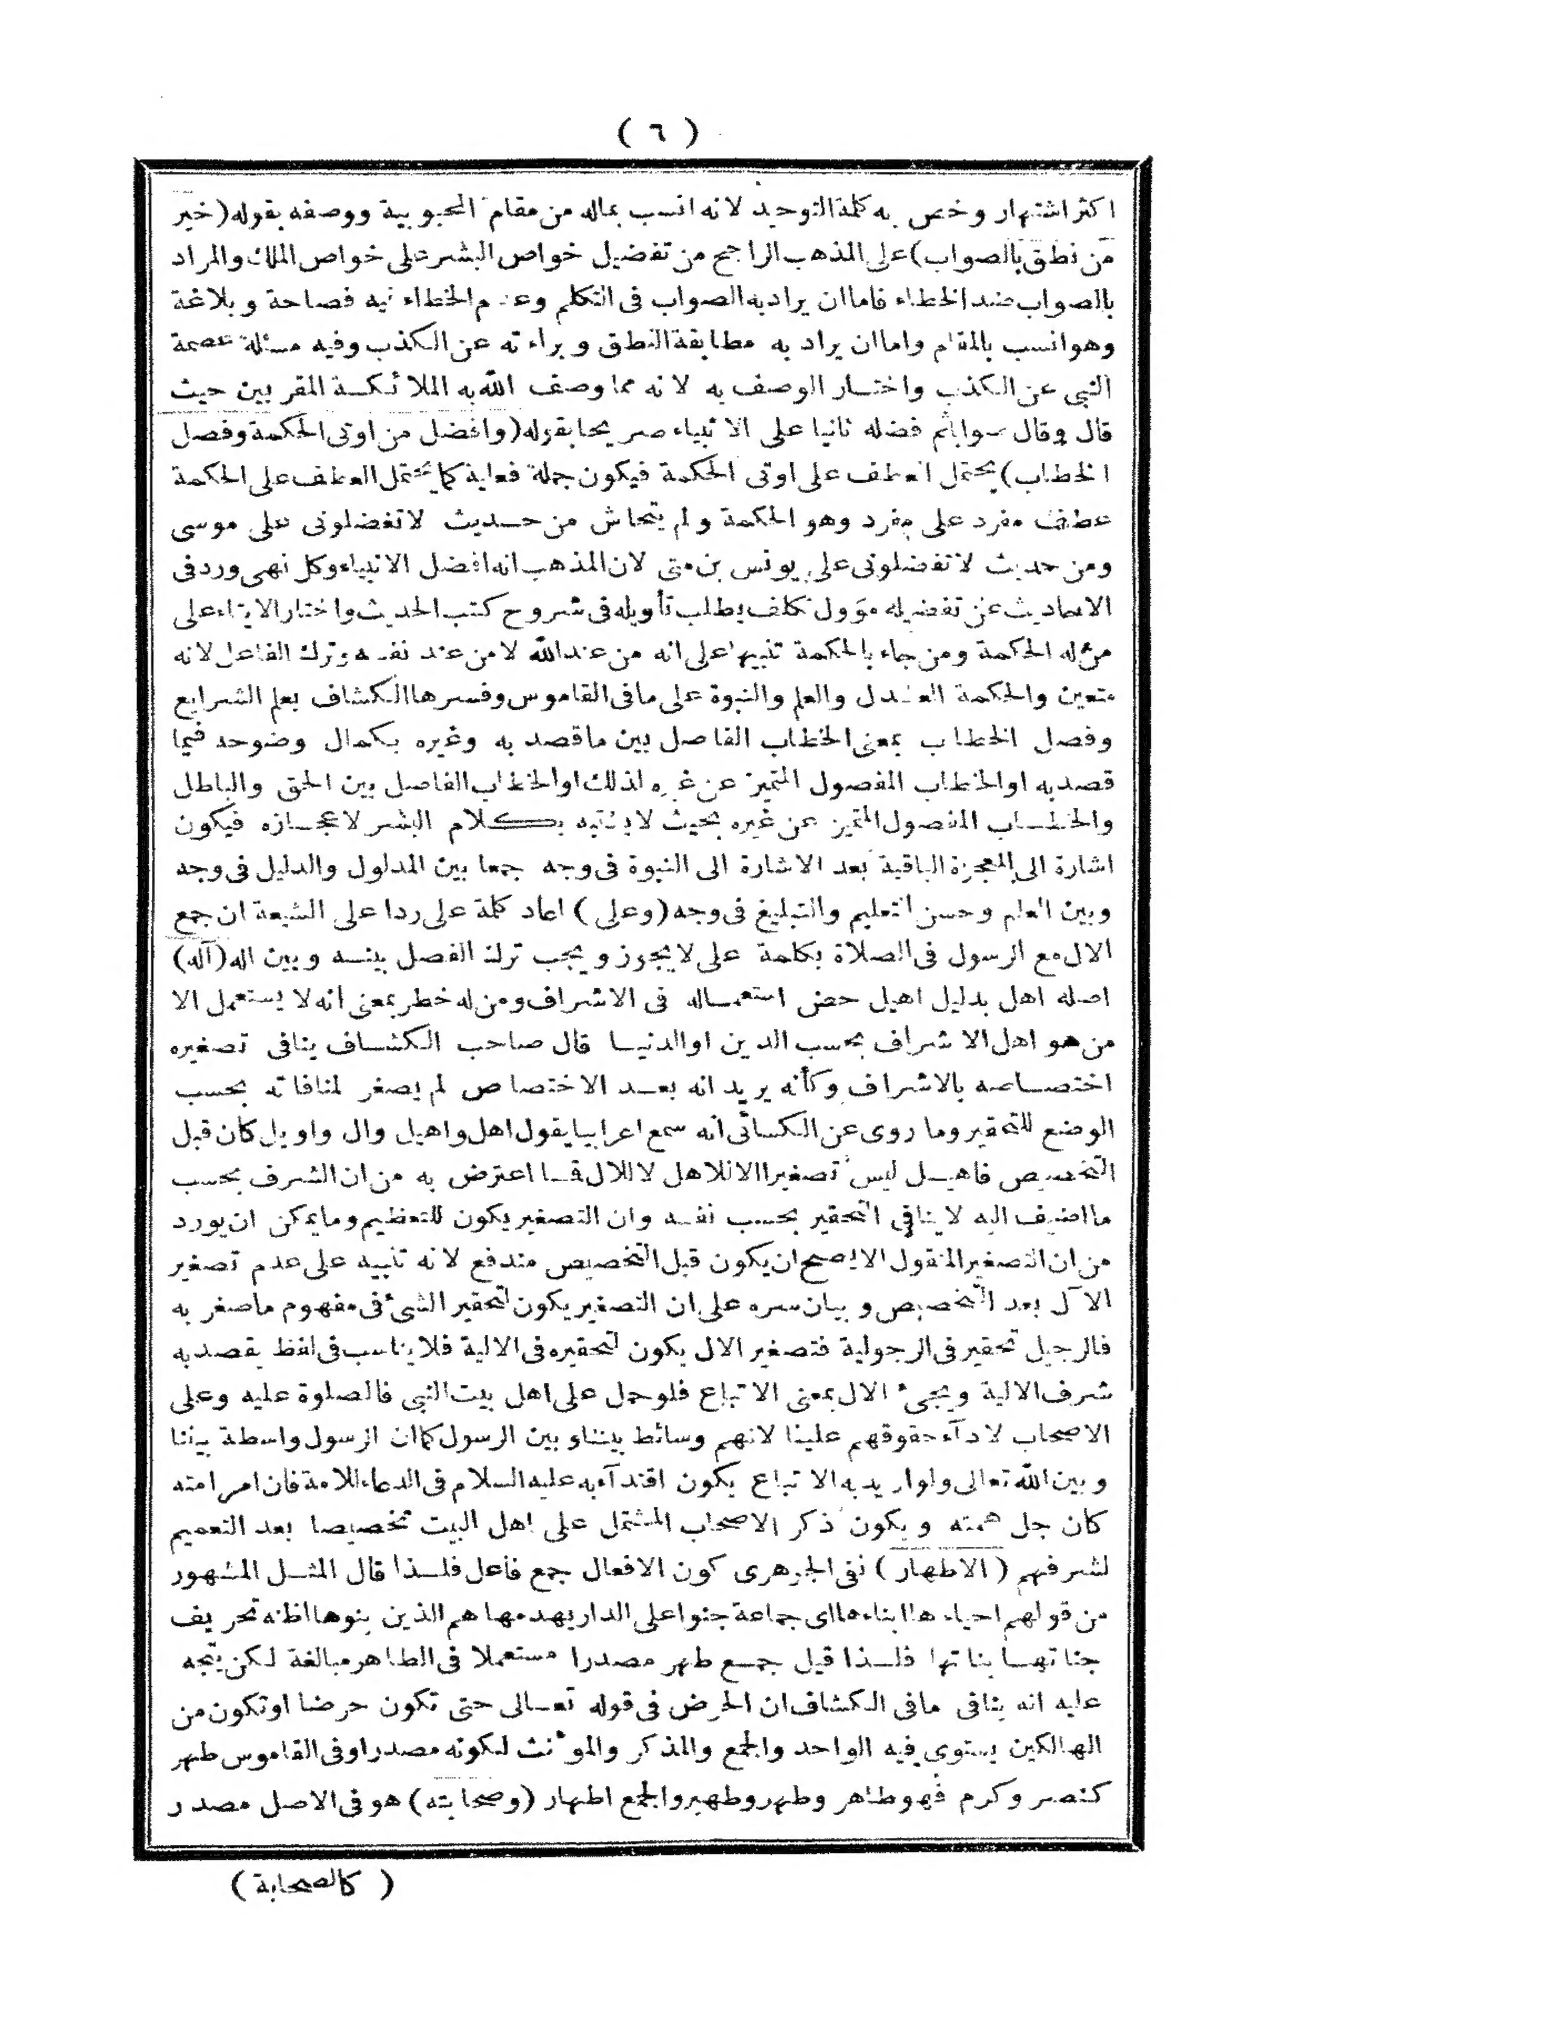 ( ٦ )
اكثر اشتهار وخص به كلمة التوحيد لانه انسب بماله من مقام المحبوبية ووصفه بقوله (خير
من نطق بالصواب) على المذهب الراجح من تفضيل خواص البشر على خواص الملك والمراد
بالصواب ضد الخطاء فاما ان يراد به الصواب فى التكلم وعدم الخطاء فيه فصاحة وبلاغة
وهو انسب بالمقام واما ان يراد به مطابقة النطق وبراءته عن الكذب وفيه مسئلة عصمة
النبى عن الكذب واختار الوصف به لانه مما وصف الله به الملائكة المقربين حيث
قال وقال صوابا ثم فضله ثانيا على الانبياء صريحا بقوله (وافضل من اوتى الحكمة وفصل
الخطاب) يحتمل العطف على اوتى الحكمة فيكون جملة فعلية كما يحتمل العطف على الحكمة
عطف مفرد على مفرد وهو الحكمة ولم يتحاش من حديث لا تفضلونى على موسى
ومن حديث لا تفضلونى على يونس بن متى لان المذهب انه افضل الانبياء وكل نهى ورد فى
الاحاديث عن تفضيله مؤول تكلف يطلب تأويله فى شروح كتب الحديث واختار الايتاء على
من له الحكمة ومن جاء بالحكمة تنبيها على انه من عند الله لا من عند نفسه وترك الفاعل لانه
متعين والحكمة العدل والعلم والنبوة على ما فى القاموس وفسرها الكشاف بعلم الشرايع
وفصل الخطاب بمعنى الخطاب الفاصل بين ما قصد به وغيره بكمال وضوحه فيما
قصد به او الخطاب المفصول المتميز عن غيره لذلك او الخطاب الفاصل بين الحق والباطل
والخطاب المفصول المتميز عن غيره بحيث لا يشتبه بكلام البشر لاعجازه فيكون
اشارة الى المعجزة الباقية بعد الاشارة الى النبوة فى وجه جمعا بين المدلول والدليل فى وجه
وبين العلم وحسن التعليم والتبليغ فى وجه (وعلى) اعاد كلمة على ردا على الشيعة ان جمع
الال مع الرسول فى الصلاة بكلمة على لا يجوز ويجب ترك الفصل بينه وبين اله (آله)
اصله اهل بدليل اهيل خص استعماله فى الاشراف ومن له خطر بمعنى انه لا يستعمل الا
من هو اهل الاشراف بحسب الدين او الدنيا قال صاحب الكشاف ينافى تصغيره
اختصاصه بالاشراف وكأنه يريد انه بعد الاختصاص لم يصغر لمنافاته بحسب
الوضع للتحقير وما روى عن الكسائى انه سمع اعرابيا يقول اهل واهيل وال واويل كان قبل
التخصيص فاهيل ليس تصغيرا الا للاهل لا للال فما اعترض به من ان الشرف بحسب
ما اضيف اليه لا ينافى التحقير بحسب نفسه وان التصغير يكون للتعظيم وما يمكن ان يورد
من ان التصغير المنقول الا يصح ان يكون قبل التخصيص مندفع لانه تنبيه على عدم تصغير
الآل بعد التخصيص وبيان سره على ان التصغير يكون لتحقير الشئ فى مفهوم ما صغر به
فالرجيل تحقير فى الرجولية فتصغير الال يكون لتحقيره فى الالية فلا يناسب فى لفظ يقصد به
شرف الالية ويجئ الال بمعنى الاتباع فلو حمل على اهل بيت النبى فالصلوة عليه وعلى
الاصحاب لادآء حقوقهم علينا لانهم وسائط بيننا وبين الرسول كما ان الرسول واسطة بيننا
وبين الله تعالى ولو اريد به الاتباع يكون اقتدآء به عليه السلام فى الدعاء للامة فان امر امته
كان جل همته ويكون ذكر الاصحاب المشتمل على اهل البيت تخصيصا بعد التعميم
لشرفهم (الاطهار) نفى الجوهرى كون الافعال جمع فاعل فلذا قال المثل المشهور
من قولهم اجناءها ابناءها اى جماعة جنوا على الدار بهدمها هم الذين بنوها اظنه تحريف
جناتها بناتها فلذا قيل جمع طهر مصدرا مستعملا فى الطاهر مبالغة لكن يتجه
عليه انه ينافى ما فى الكشاف ان الحرض فى قوله تعالى حتى تكون حرضا او تكون من
الهالكين يستوى فيه الواحد والجمع والمذكر والمؤنث لكونه مصدرا وفى القاموس طهر
كنصر وكرم فهو طاهر وطهر وطهير والجمع اطهار (وصحابته) هو فى الاصل مصدر
( كالصحابة )